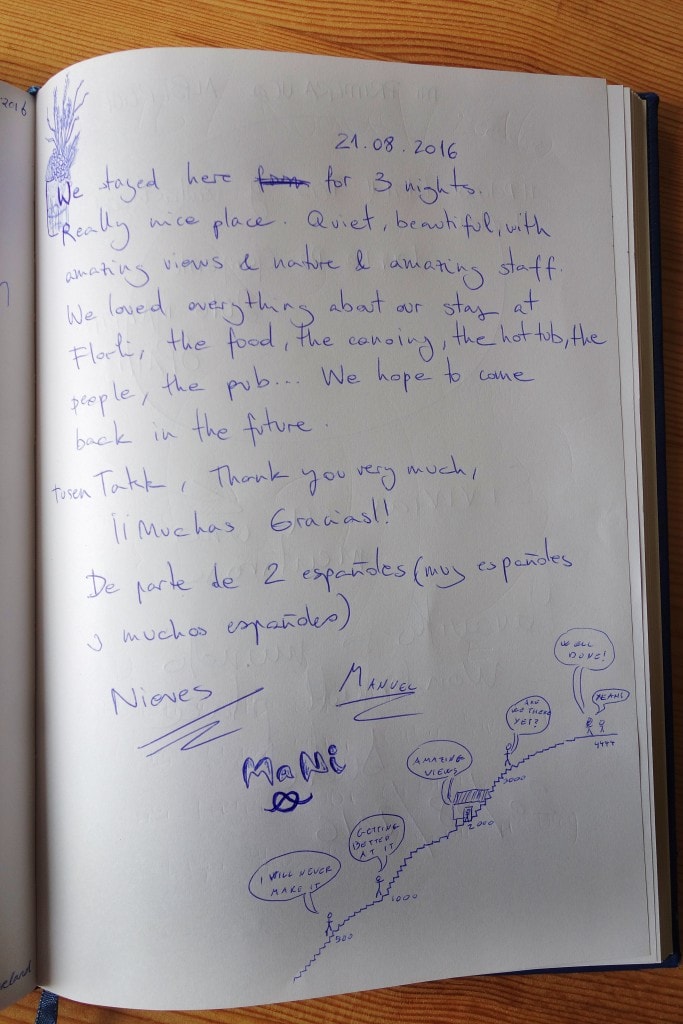 2016
21.08.2016
We stayed here for 3 nights.
Really nice place. Quiet, beautiful, with
amazing views & nature & amazing staff.
We loved everything about our stay at
Florli, the food, the canoing, the hot tub, the
people, the pub... We hope to come
back in the future.
tusen Takk, Thank you very much,
¡¡Muchas Gracias!!
De parte de 2 españoles (muy españoles
y muchos españoles)
Nieves
Manuel
MaNi
WELL
DONE!
YEAH!
4444
ARE
WE THERE
YET?
3000
AMAZING
VIEWS
2000
GETTING
BETTER
AT IT
1000
I WILL NEVER
MAKE IT
500